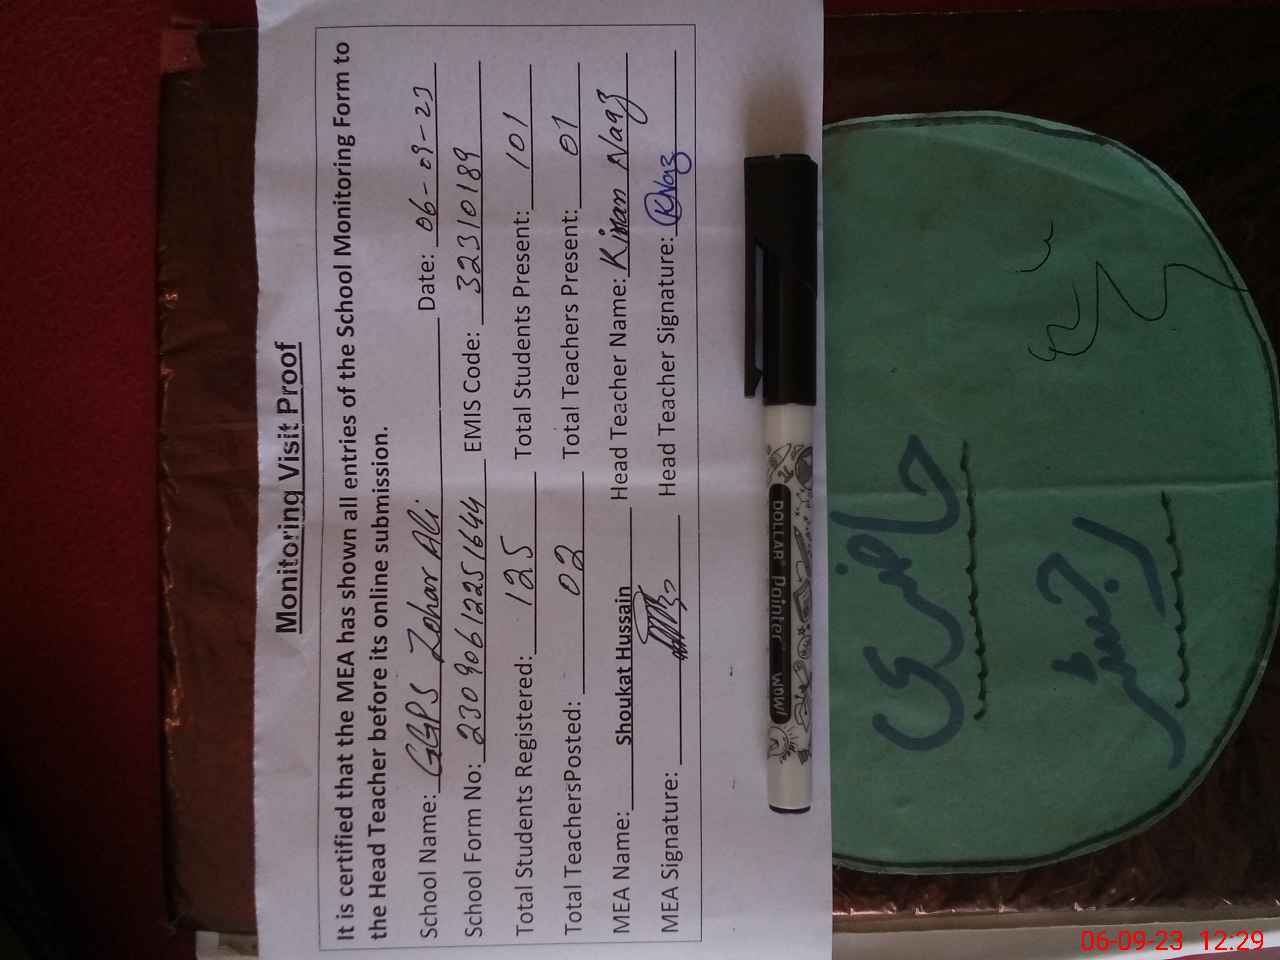 Monitoring Visit Proof
It is certified that the MEA has shown all entries of the School Monitoring Form to
the Head Teacher before its online submission.
School Name: GGPS Zohar Ali. Date: 06-09-23
School Form No: 230906122251644 EMIS Code: 32310189
Total Students Registered: 125 Total Students Present: 101
Total TeachersPosted: 02 Total Teachers Present: 01
MEA Name: Shoukat Hussain Head Teacher Name: Kiran Naaz
MEA Signature: Head Teacher Signature: KNaz
DOLLAR Pointer WOW!
حاضری
رجسٹر
06-09-23 12:29